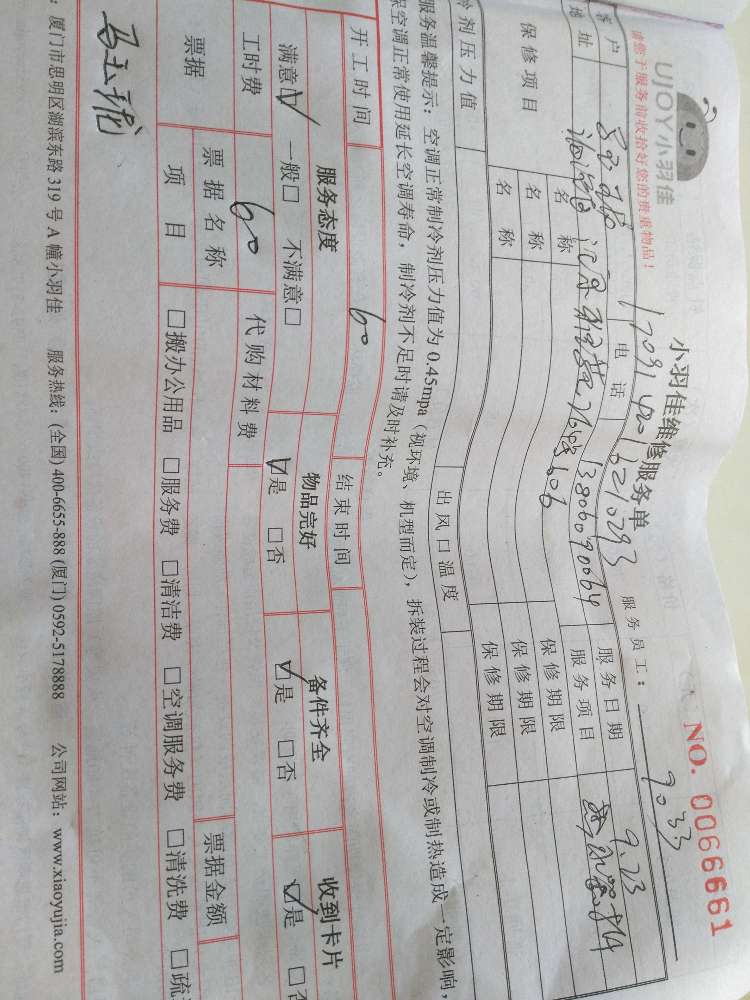 UJOY小羽佳
请您于服务前收拾好您的贵重物品！
小羽佳维修服务单
NO. 0066661
170914201210293
服务员工： 9033
客户 电话 13806090064 服务日期 9.23
地址 服务项目
保修项目 名称 保修期限
名称 保修期限
名称 保修期限
冷剂压力值 出风口温度
服务温馨提示：空调正常制冷剂压力值为 0.45mpa（视环境、机型而定），拆装过程会对空调制冷或制热造成一定影响，
保空调正常使用延长空调寿命，制冷剂不足时请及时补充。
开工时间 结束时间
服务态度 物品完好 备件齐全 收到卡片
满意☑ 一般□ 不满意□ ☑是 □否 ☑是 □否 ☑是 □否
工时费 60 代购材料费 60
票据 票据名称 票据金额
项目 □搬办公用品 □服务费 □清洁费 □空调服务费 □清洗费 □疏
马玉珑
：厦门市思明区湖滨东路 319 号 A 幢小羽佳 服务热线：(全国) 400-6655-888 (厦门) 0592-5178888 公司网站：www.xiaoyujia.com